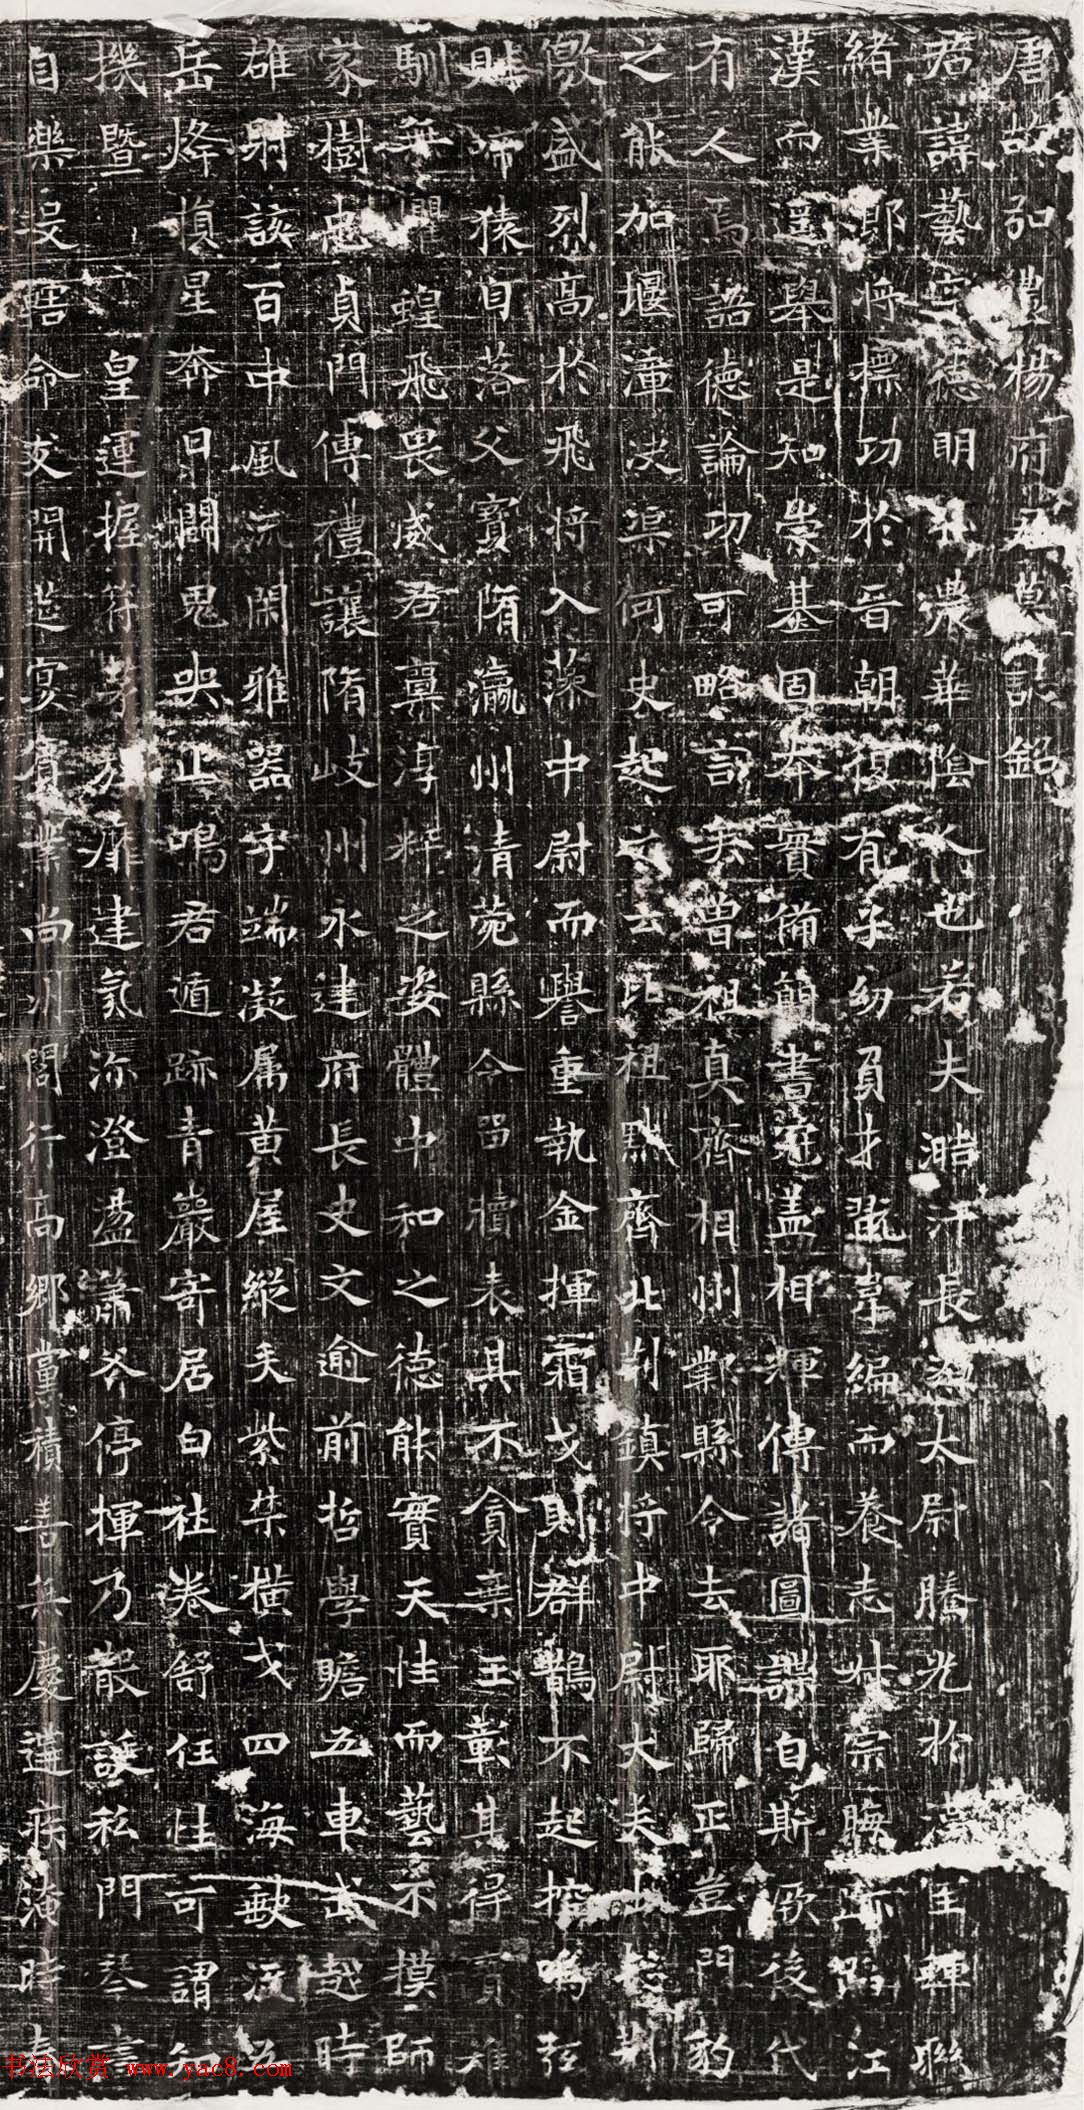 唐故弘農楊府君墓誌銘
君諱藝字德明弘農華陰人也若夫澔汗長 太尉騰光於 生輝聯
緒業郎將標功於晉朝復有子幼負才 韋編而養志 宗晦跡蹈江
漢而遥舉是知崇基固本實備簡書冠盖相暉傳諸圖諜自斯厥後代
有人焉語德論功可略言矣曾祖真齊相州鄴縣令去耶歸正豈門豹
之能加堰漳決渠何史起之云比祖 齊北 鎮將中尉大夫
徼盛烈高於飛將入藻中尉而譽重執金揮霜戈則群鵲不起控鳴弦
則啼猿自落父寶隋瀛州清菀縣令留犢表其不貪棄玉彰其得寶
馴 飛畏威君冀淳粹之姿體中和之德能實天性而藝不摸師
家樹忠貞門傳禮讓隋岐州永建府長史文逾前哲學贍五車武越時
雄射該百中風流閑雅器宇端凝属黄屋縱矢紫禁横戈四海 波五
岳烽 星奔日鬭鬼哭山鳴君遁跡青巖寄居白社卷舒任性可謂知
機暨 皇運握符 建氣沴澄盪 停揮乃散誕私門琴言
自樂 命友開筵宴賓業尚州閭行高鄉黨積善無慶遘疾淹時
书法欣赏 www.yac8.com